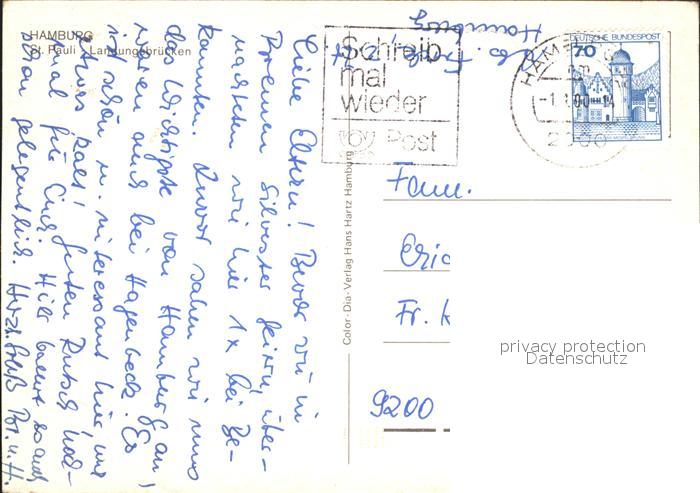 HAMBURG
St. Pauli - Landungsbrücken
Liebe Eltern! Bevor wir in
Bremen Silvester feiern, über-
nachten wir hier 1x bei Be-
kannten. Zuvor sahen wir uns
das Wichtigste von Hamburg an,
waren auch bei Hagenbeck. Es
ist schön u. interessant hier, nur
etwas kalt! Guten Rutsch noch-
mal für Euch! Hier knallt es auch
schon gelegentlich. Herzl. Grüße
Hamburg
Schreib
mal
wieder
Post
HAMBURG
-1.1.80-14
2000
DEUTSCHE BUNDESPOST
70
Color-Dia-Verlag Hans Hartz Hamburg
Fam.
Eric
Fr.
9200
privacy protection
Datenschutz